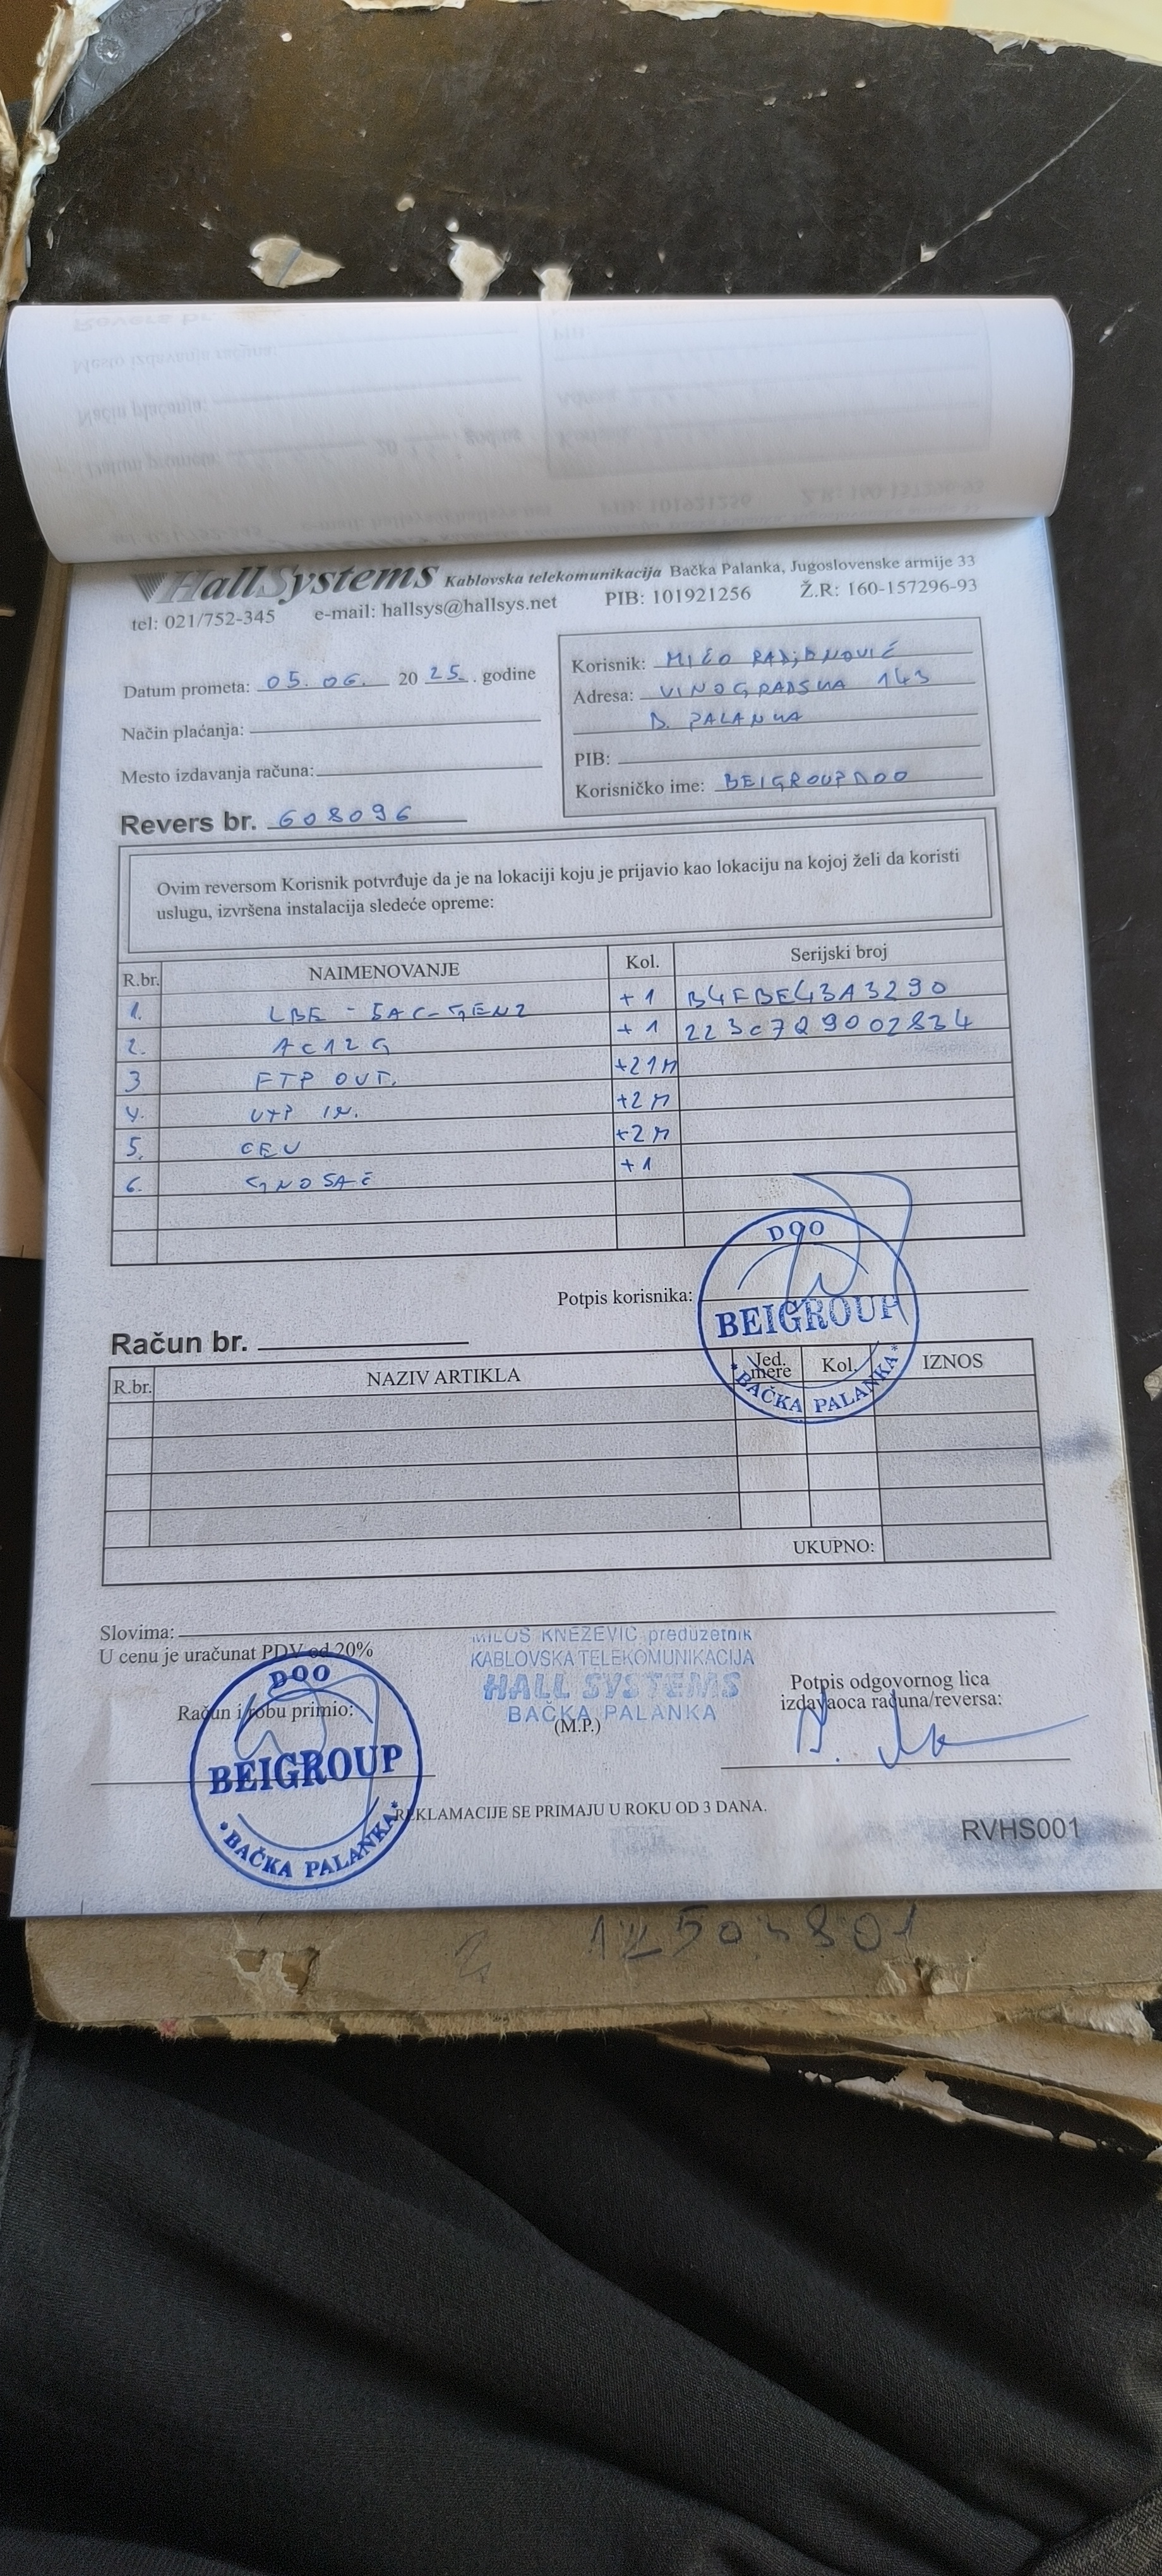 HallSystems Kablovska telekomunikacija Bačka Palanka, Jugoslovenske armije 33
tel: 021/752-345 e-mail: hallsys@hallsys.net PIB: 101921256 Ž.R: 160-157296-93
Datum prometa: 05.06. 2025. godine
Način plaćanja:
Mesto izdavanja računa:
Korisnik: MIĆO
Adresa: VINOGRADSKA 143
B. PALANKA
PIB:
Korisničko ime: BEIGROUPDOO
Revers br. 608096
Ovim reversom Korisnik potvrđuje da je na lokaciji koju je prijavio kao lokaciju na kojoj želi da koristi
uslugu, izvršena instalacija sledeće opreme:
R.br. NAIMENOVANJE Kol. Serijski broj
1. LBE-5AC-GEN2 +1 B4FBE43A3290
2. AC12G +1 223C7Q9002834
3 FTP OUT. +21M
4. UTP IN. +2M
5. CEV +2M
6. +1
Potpis korisnika:
DOO
BEIGROUP
BAČKA PALANKA
Račun br.
R.br. NAZIV ARTIKLA Jed. mere Kol. IZNOS
UKUPNO:
Slovima:
U cenu je uračunat PDV od 20%
MILOŠ KNEŽEVIĆ preduzetnik
KABLOVSKA TELEKOMUNIKACIJA
HALL SYSTEMS
BAČKA PALANKA
(M.P.)
Račun i robu primio:
DOO
BEIGROUP
BAČKA PALANKA
Potpis odgovornog lica
izdavaoca računa/reversa:
REKLAMACIJE SE PRIMAJU U ROKU OD 3 DANA.
RVHS001